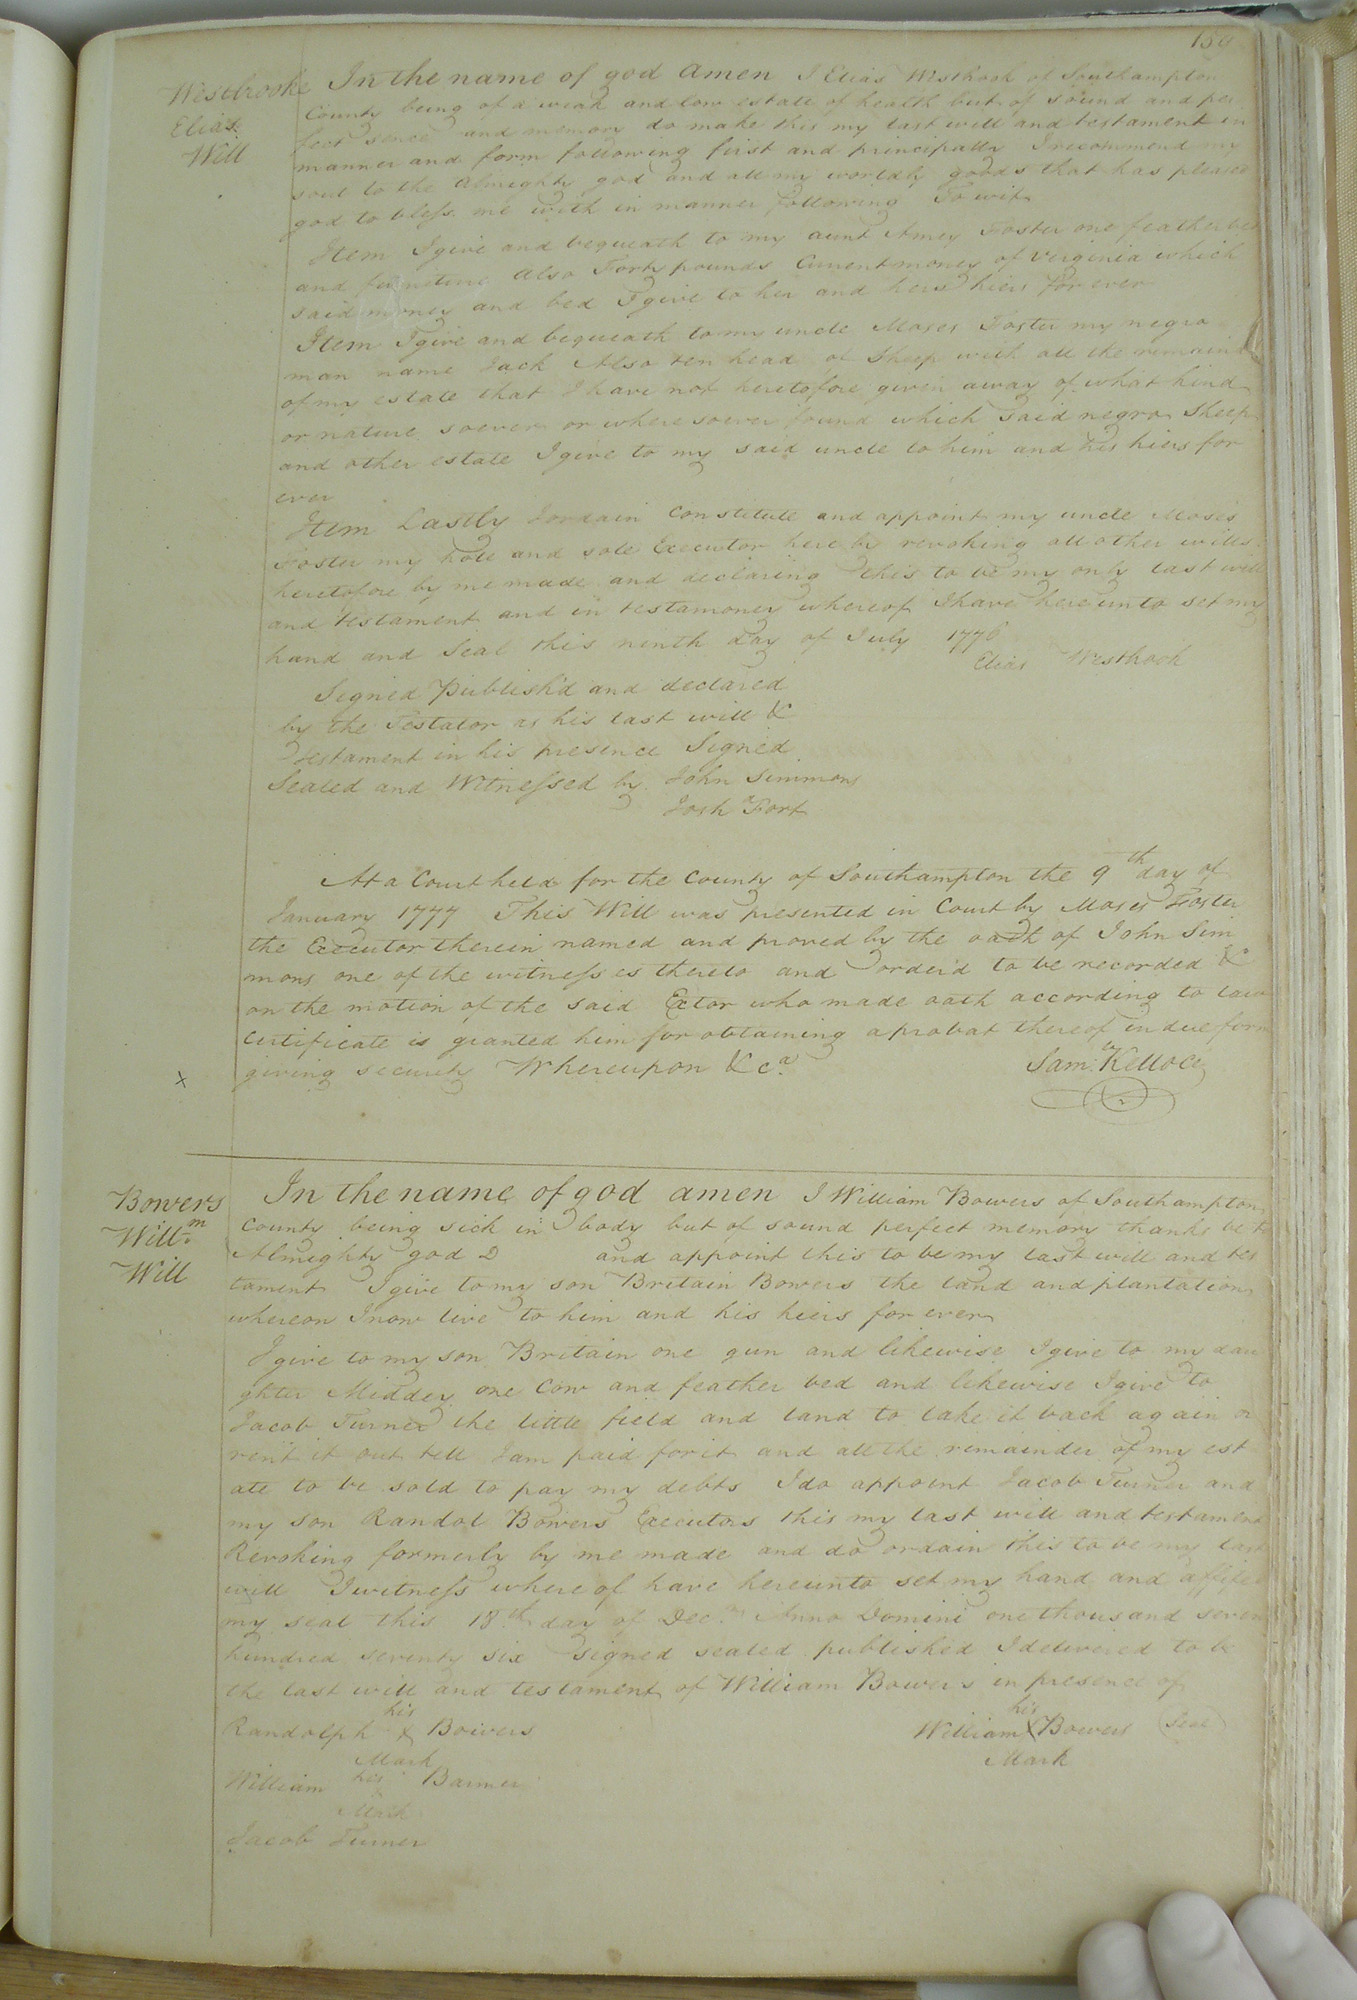 Westbrooke
Elias
Will
In the name of god Amen I Elias Westbrook of Southampton
County being of a weak and low estate of health but of sound and per
fect sence and memory do make this my last will and testament in
manner and form following first and principally I recommend my
soul to the Almighty god and all my worldly goods that has pleased
god to bless me with in manner following To wit
Item I give and bequeath to my aunt Amey Foster one feather bed
and furniture Also Forty pounds Current money of Virginia which
said money and bed I give to her and hers hiers for ever
Item I give and bequeath to my uncle Moses Foster my negro
man name Jack Also ten head of Sheep with all the remaind
of my estate that I have not heretofore given away of what kind
or nature soever or where soever found which said negro Sheep
and other estate I give to my said uncle to him and his hiers for
ever
Item Lastly I ordain Constitute and appoint my uncle Moses
Foster my hole and sole Executor here by revoking all other wills
heretofore by me made and declaring this to be my only last will
and testament and in testamoney whereof I have here unto set my
hand and Seal this ninth day of July 1776
Elias Westbrook
Signed Publish'd and declared
by the Testator as his last will &
Testament in his presence Signed
Sealed and Witnessed by John Simmons
Josh Fort
At a Court held for the County of Southampton the 9th day of
January 1777 This Will was presented in Court by Moses Foster
the Executor therein named and proved by the oath of John Sim
mons one of the witnesses thereto and order'd to be recorded &
on the motion of the said Extor who made oath according to law
Certificate is granted him for obtaining a probat thereof in due form
giving security Whereupon &ca
Sam. Kello Cc
x
Bowers
Willm
Will
In the name of god amen I William Bowers of Southampton
County being sick in body but of sound perfect memory thanks be to
Almighty god D and appoint this to be my last will and tes
tament I give to my son Britain Bowers the land and plantation
whereon I now live to him and his hiers for ever
I give to my son Britain one gun and likewise I give to my dau
ghter Middey one Cow and feather bed and likewise I give to
Jacob Turner the little field and land to take it back again or
rent it out till I am paid for it and all the remainder of my est
ate to be sold to pay my debts I do appoint Jacob Turner and
my son Randol Bowers Executors this my last will and testament
Revoking formerly by me made and do ordain this to be my last
will I witness where of have hereunto set my hand and affixed
my seal this 18th day of Decr Anno Domini one thousand seven
hundred seventy six Signed sealed published I delivered to be
the last will and testament of William Bowers in presence of
Randolph his x Bowers
Mark
William his X Bowers Seal
Mark
William his Barmer
Mark
Jacob Turner